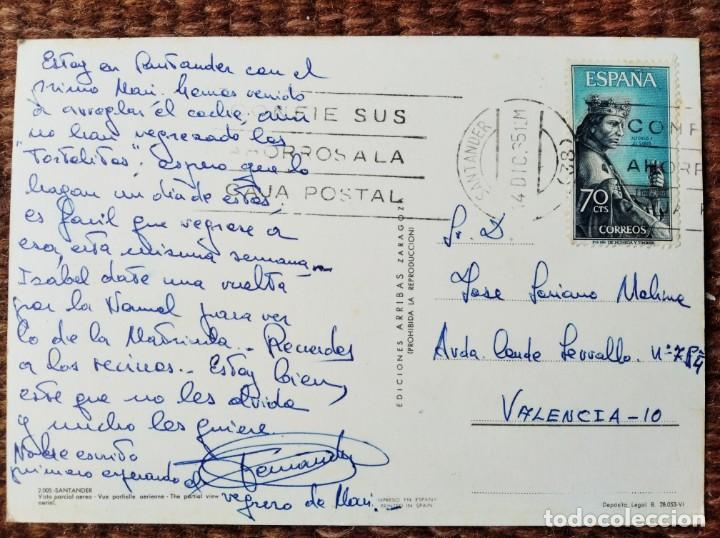 Estoy en Santander con el
primo Mari. Hemos venido
a arreglar el coche, aun
no han regresado los
"Tortolitos". Espero que lo
hagan un dia de estos
es facil que regrese a
esa esta misma semana
Isabel date una vuelta
por la Normal para ver
lo de la Matricula.. Recuerdos
a los vecinos.. Estoy bien,
este que no les olvida
y mucho les quiere.
No he escrito
primero esperando el
regreso de Mari.
Fernando
2.005.-SANTANDER
Vista parcial aerea - Vue partielle aerienne - The partial view
aerial.
EDICIONES ARRIBAS ZARAGOZA
(PROHIBIDA LA REPRODUCCION)
IMPRESO EN ESPAÑA
PRINTED IN SPAIN
CONFIE SUS
AHORROS A LA
CAJA POSTAL
SANTANDER
14 DIC. 65
(38)
CONF
AHORR
ESPAÑA
ALFONSO X
EL SABIO
70
CTS
CORREOS
Sr. D.
Jose Soriano Molina
Avda. Conde Serrallo. nº 7
VALENCIA-10
Depósito, Legal B. 28.053-VI
todocoleccion